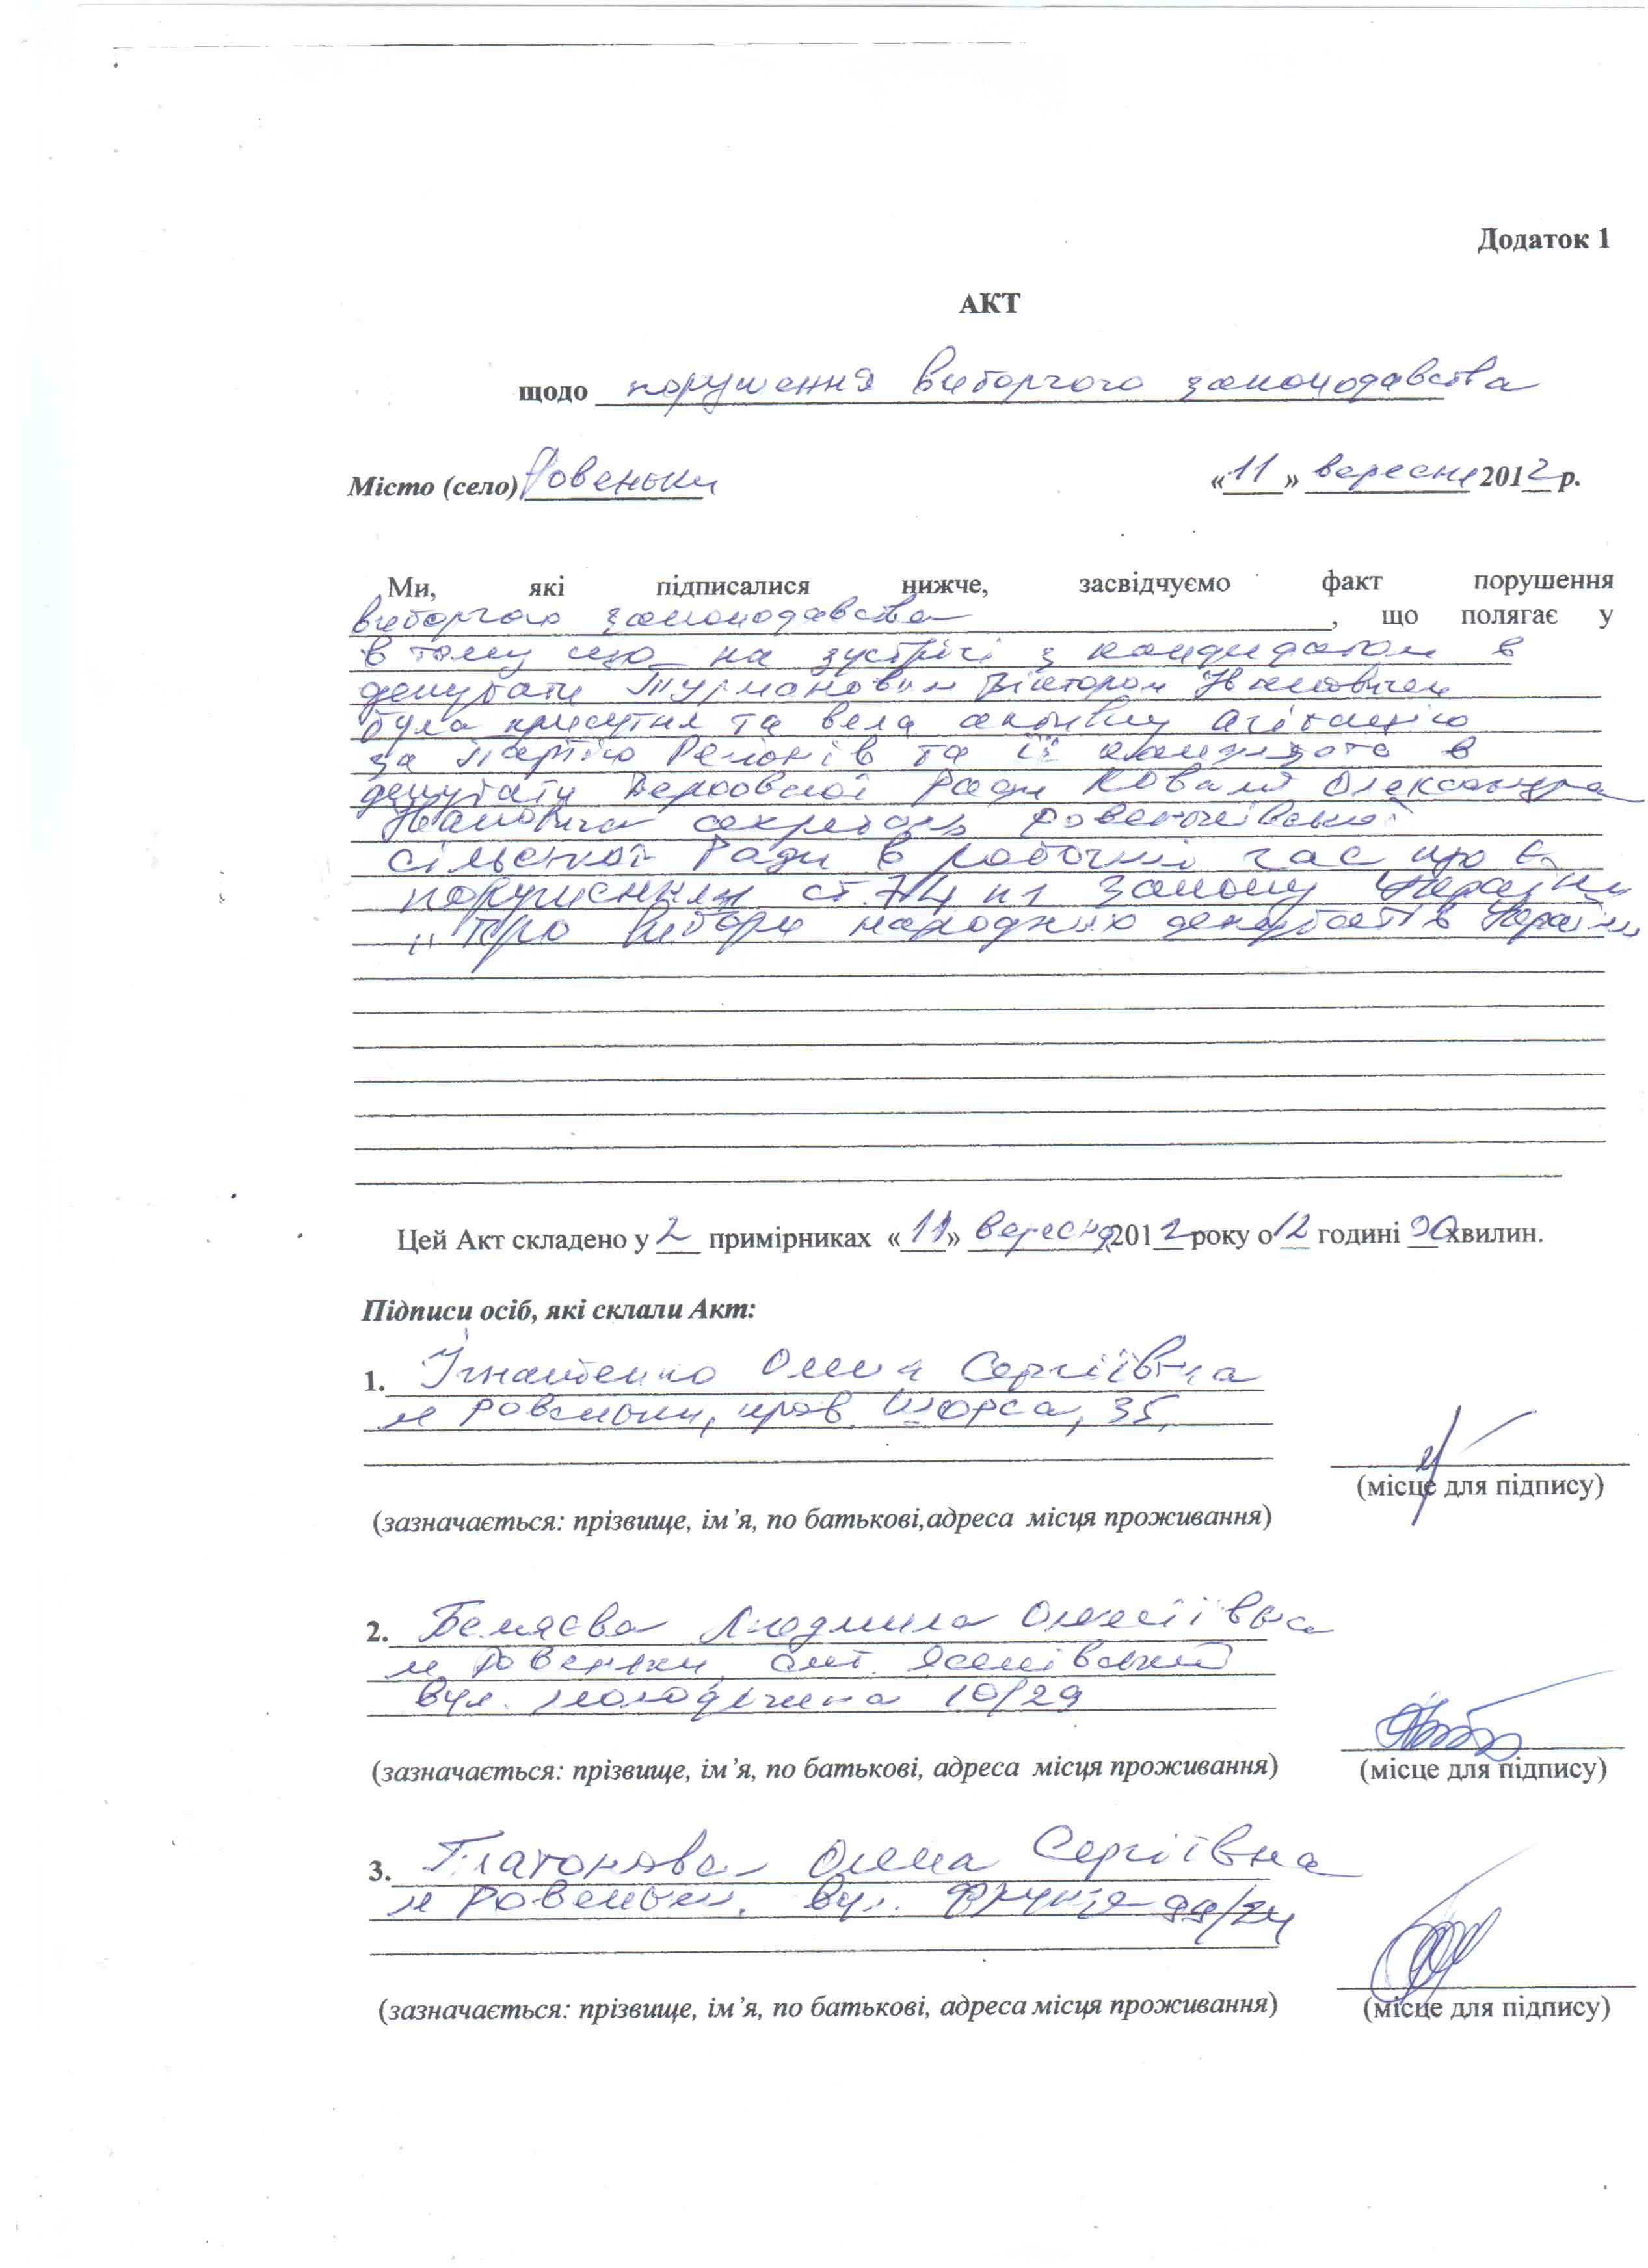 Додаток 1
АКТ
щодо порушення виборчого законодавства
Місто (село) Ровеньки «11» вересня 2012 р.
Ми, які підписалися нижче, засвідчуємо факт порушення
виборчого законодавства, що полягає у
в тому що на зустрічі з кандидатом в
депутати Турмановим Віктором Івановичем
була присутня та вела активну агітацію
за Партію Регіонів та її кандидата в
депутати Верховної Ради Коваля Олександра
Івановича секретарь Ровеньківської
сільської Ради в робочий час що є
порушенням ст. 74 п 1 Закону України
„Про вибори народних депутатів України
Цей Акт складено у 2 примірниках «11» вересня 2012 року о 12 годині 00 хвилин.
Підписи осіб, які склали Акт:
1. Ігнатенко Олена Сергіївна
м Ровеньки, пров. Щорса, 35,
(місце для підпису)
(зазначається: прізвище, ім’я, по батькові,адреса місця проживання)
2. Беляєва Людмила Олексіївна
м Ровеньки, смт. Ясенівський
вул. Молодіжна 10/29
(зазначається: прізвище, ім’я, по батькові, адреса місця проживання) (місце для підпису)
3. Платонова Олена Сергіївна
м Ровеньки. вул. Фрунзе 99/24
(зазначається: прізвище, ім’я, по батькові, адреса місця проживання) (місце для підпису)